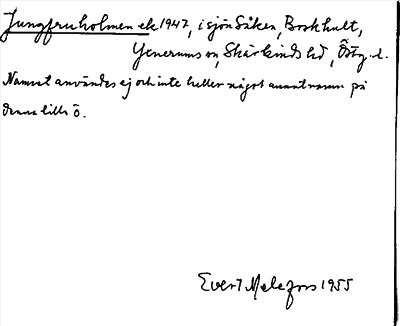 Jungfruholmen ek 1947, i sjön Såken, Borkhult,
Yxnerums sn, Skärkinds hd, Östg. l.
Namnet användes ej och inte heller något annat namn på
denna lilla ö.
Evert Melefors 1955